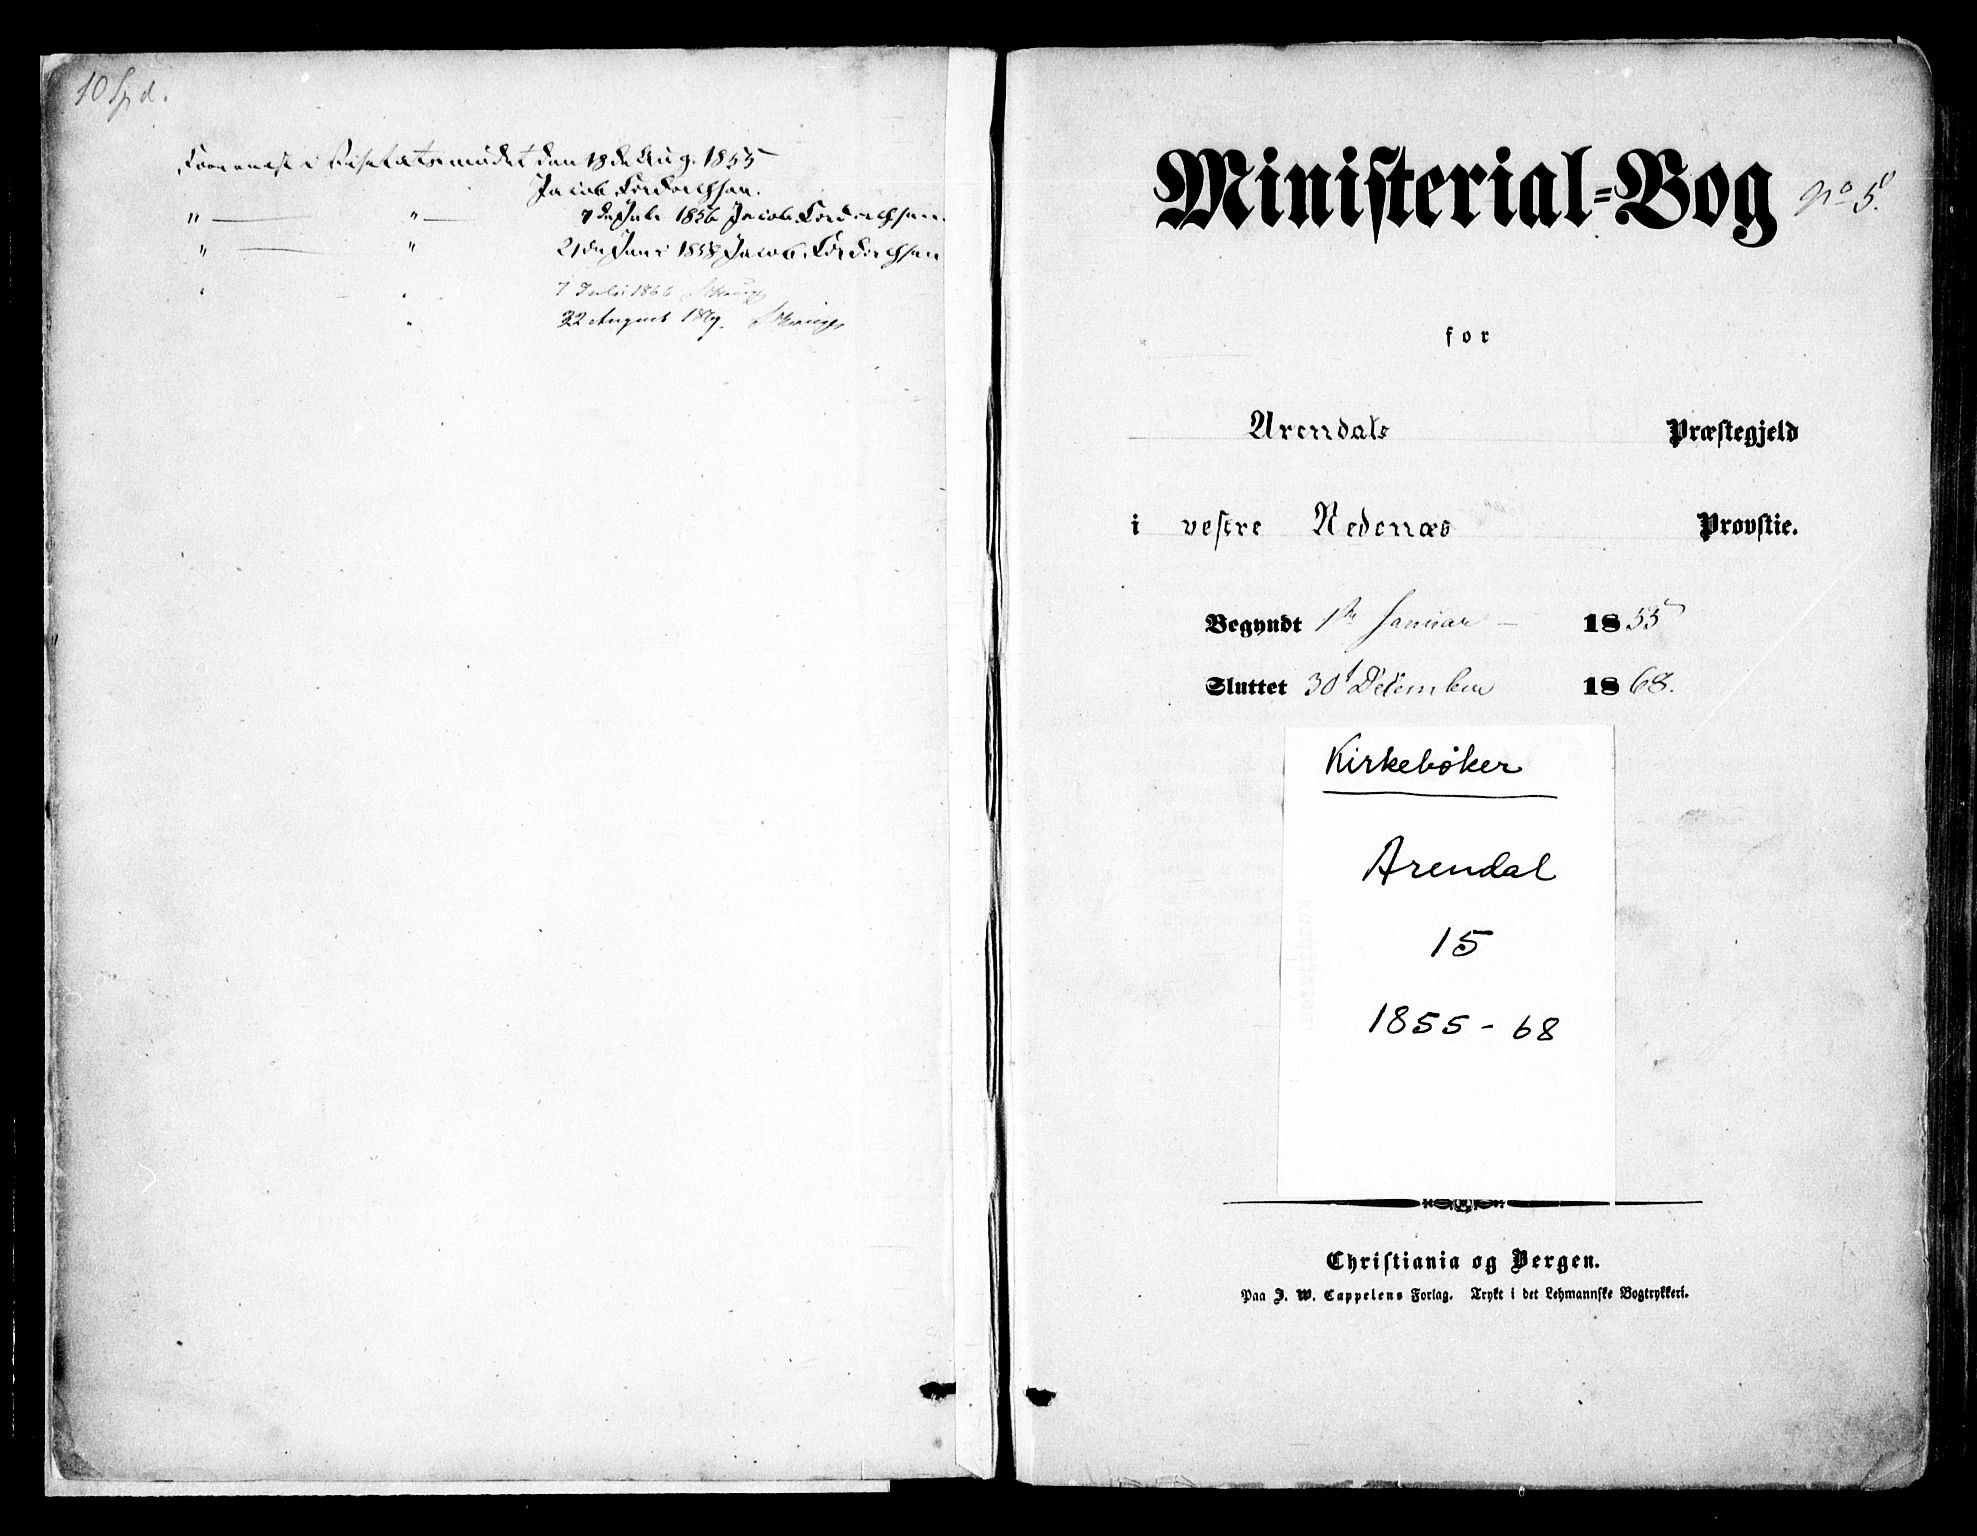 10 Spd.
i Visitatsmødet den 18de Aug. 1855
Jacob
" " 7de Juli 1856 Jacob
" " 21de Juni 1858 Jacob
" 7 Juli 1866
" 22 August 1869.
Ministerial-Bog No 5.
for
Arendals Præstegjeld
i vestre Nedenæs Provstie.
Begyndt 1ste Januar 1855
Sluttet 30t December 1868.
Kirkebøker
Arendal
15
1855-68
Christiania og Bergen.
Paa J. W. Cappelens Forlag. Trykt i det Lehmannske Bogtrykkeri.